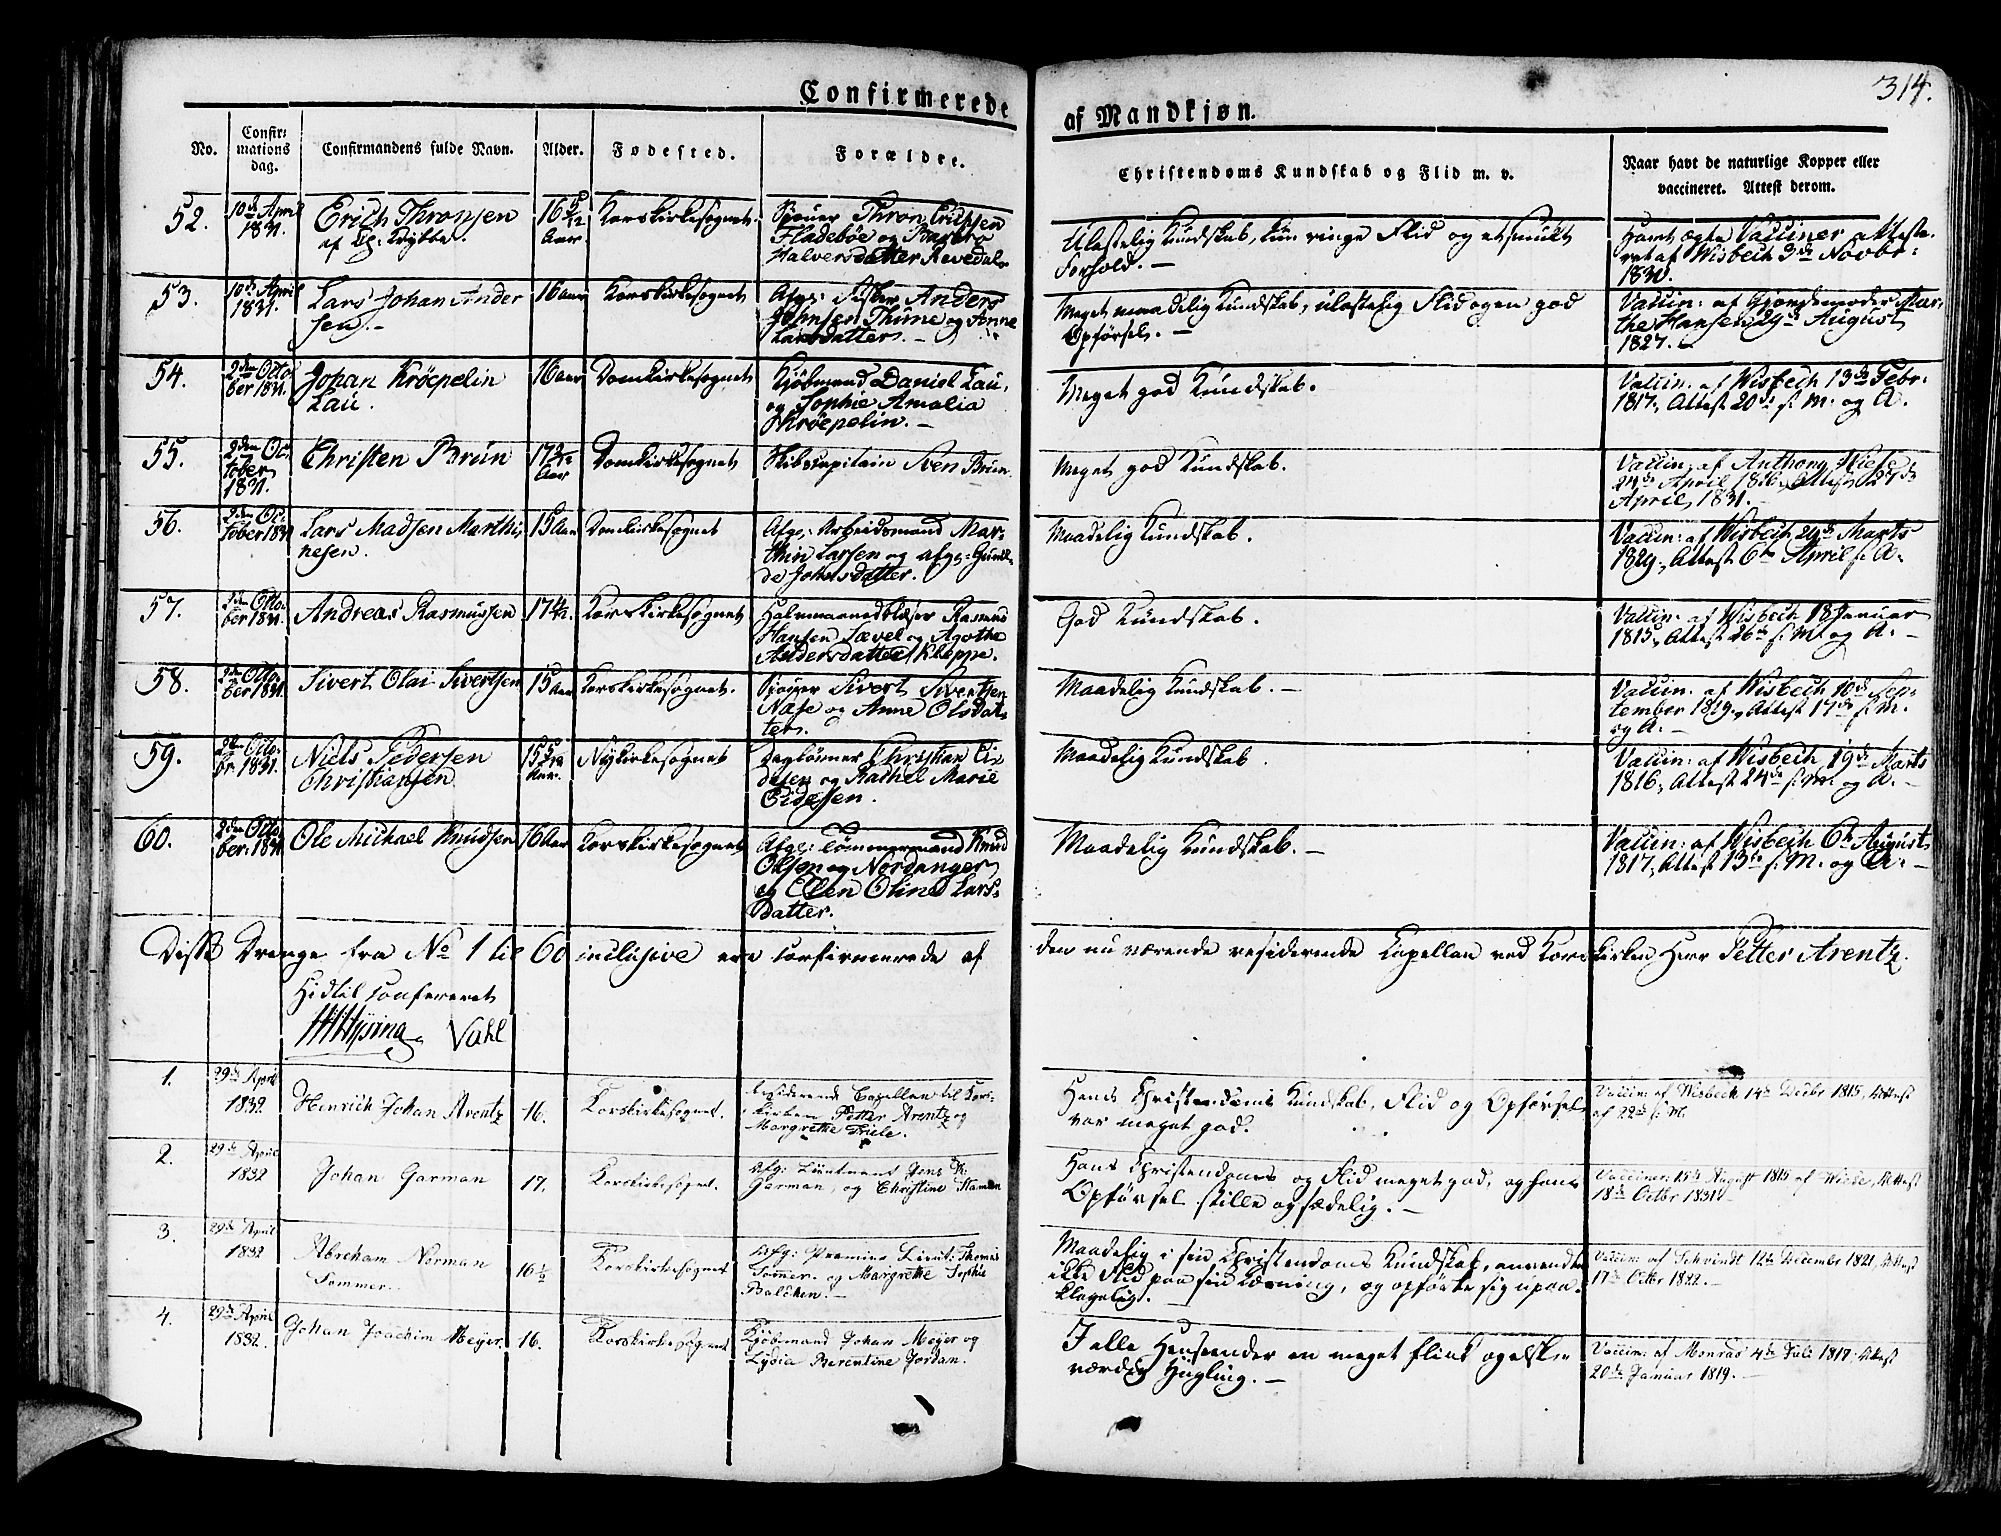 314.
Confirmerede
af Mandkjøn.
No.
Confir-
mations
dag.
Confirmandens fulde Navn.
Alder.
Fødested.
Forældre.
Christendoms Kundskab og Flid m. v.
Naar havt de naturlige Kopper eller
vaccineret. Attest derom.
52.
10de April
1831.
Erich Thronsen
16 5/12
Aar.
Korskirkesognet.
Sjouer Thron Erichsen
Fladebøe og Barbro
Halversdatter Revedal
Ulastelig Kundskab, kun ringe Flid og et smukt
Forhold. -
Havt ægte Vacciner atteste-
ret af Wisbech 9de Novbr.
1830.
53.
10de April
1831.
Lars Johan Ander
sen. -
16 Aar
Korskirkesognet
Afg: Anders
Johnsen Thime og Anne
Larsdatter. -
Meget maadelig Kundskab, ulastelig Flid og en god
Opførsel. -
Vaccin: af Gjordemoder Mar-
the Hansen 29de August
1827. -
54.
2den Octo
ber 1831.
Johan Krøepelin
Lau.
16 Aar
Domkirkesognet
Kjøbmand Daniel Lau,
og Sophie Amalia
Krøepelin. -
Meget god Kundskab.
Vaccin: af Wisbech 13de Febr:
1817, Attest 20de s. M. og A.
55.
2den Oc
tober
1831.
Christen Brun
17 3/12
Aar
Domkirkesognet
Skibscapitain Sven Brun
Meget god Kundskab.
Vaccin: af Anthony Wiese
24de April 1816, Attest 27de
April, 1831. -
56.
2den Oc
tober 1831
Lars Madsen Marthi
nesen.
15 Aar
Domkirkesognet
Afg: Arbeidsmand Mar-
thin Larsen og afg: Gunil-
de Johnsdatter.
Maadelig Kundskab.
Vaccin: af Wisbech 24de Marts
1829, Attest 6te April s. A.
57.
2den Octo:
ber 1831.
Andreas Rasmussen
17 4/12.
Korskirkesognet
Halvmaanedblæser Rasmus
Hansen Lævel og Agothe
Andersdatter Kleppe.
God Kundskab.
Vaccin: af Wisbech 18 Januar
1815, Attest 26de s. M. og A. -
58.
2den Octo
ber 1831.
Sivert Olai Sivertsen
15 Aar
Korskirkesognet.
Sjouer Sivert Sivertsen
Næse og Anne Olsdat-
ter.
Maadelig Kundskab. -
Vaccin: af Wisbech 10de Sep-
tember 1819, Attest 17de s. M.
og A. -
59.
2den Octo-
br. 1831.
Niels Pedersen
Christiansen
15 5/12
Aar.
Nykirkesognet
Daglønner Christian Ei-
desen og Rachel Marie
Eidesen.
Maadelig Kundskab.
Vaccin: af Wisbech 19de Marts
1816, Attest 24de s. M. og A. -
60.
2den Octo
ber 1831
Ole Michael Knudsen
16 Aar
Korskirkesognet
Afg: Tømmermand Knud
Olsen og Nordanger
og Ellen Oline Lars-
Datter.
Maadelig Kundskab. -
Vaccin: af Wisbech 6te August
1817, Attest 13de s. M. og A. -
Disse Drenge fra No 1 til 60 inclusive ere confirmerede af
den nu værende residerende Kapellan ved Korskirken Herr Petter Arentz.
Hidtil confereret
Vahl
1.
29de April
1832
Henrich Johan Arentz
16.
Korskirkesognet.
residerende Capellan til Kors-
kirken Petter Arentz og
Margrethe Friele.
Hans Christendoms Kundskab, Flid og Opførsel
var meget god.
Vaccin: af Wisbech 14de Decbr 1815, Attest
af 22de s. M.
2.
29de April
1832
Johan Garman
17.
Korskirkesognet.
Afg: Lieutnant Jens
Garman, og Christine
Hans Christendoms og Flid meget god, og hans
Opførsel stille og sædelig. -
Vacciner: 15de August 1815 af Wiese, Attest
18de Octbr 1831. -
3.
29de April
1832
Abraham Norman
Sommer.
16 1/2
Korskirkesognet
Afg: Premier Lieut: Thomas
Sommer og Margrethe Sophie
Balchen. -
Maadelig i sin Christendoms Kundskab, anvendte
ikke Flid paa sin Læsning, og opførte sig upaa-
klagelig. -
Vaccin: af Schvindt 12te December 1821, Attest
17de Octbr 1822. -
4.
29de April
1832.
Johan Joachim Meyer.
16.
Korskirkesognet
Kjøbmand Johan Meyer og
Lydia Berentine Jordan.
I alle Henseender en meget flink og elskv-
værdig Yngling. -
Vaccin: af Monrad 4de Juli 1817, Attest
20de Januar 1819. -